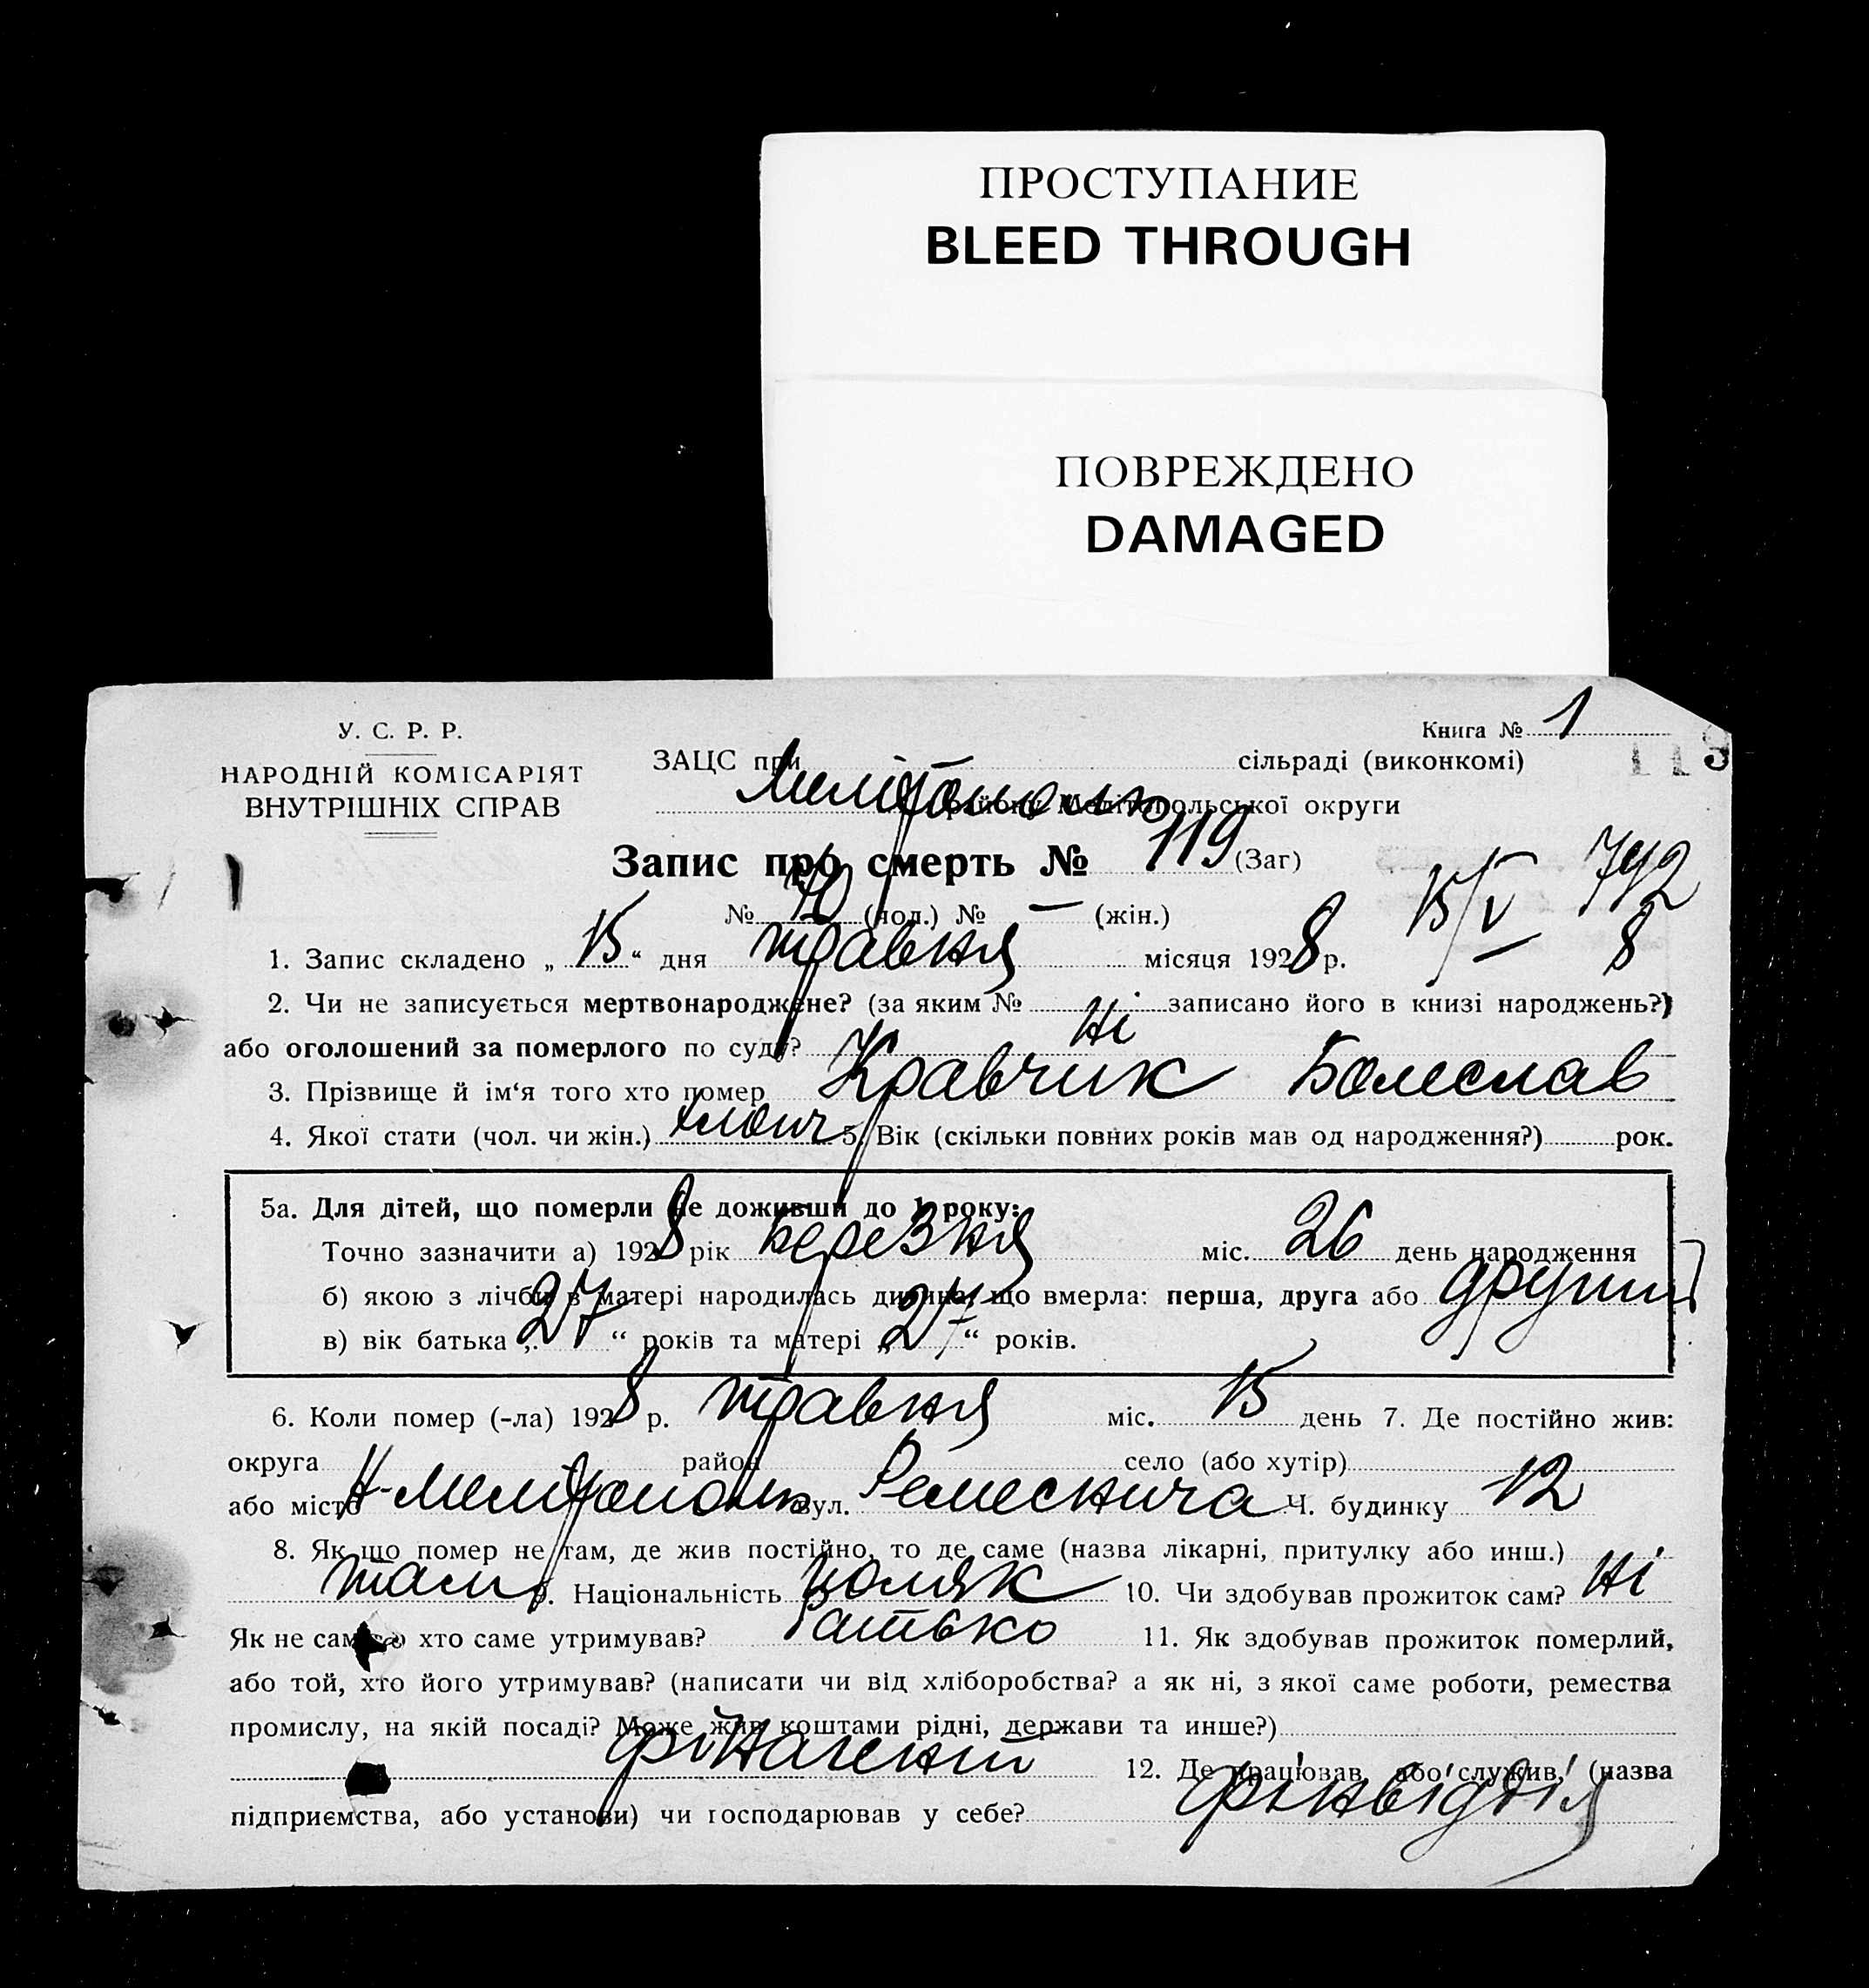 ПРОСТУПАНИЕ
BLEED THROUGH
ПОВРЕЖДЕНО
DAMAGED
У. С. Р. Р.
НАРОДНІЙ КОМІСАРІЯТ
ВНУТРІШНІХ СПРАВ
Книга № 1
113
ЗАЦС при сільраді (виконкомі)
Мелітополь району Мелітопольської округи
Запис про смерть № 119 (Заг)
15/V 742
8
№ 70 (чол.) № — (жін.)
1. Запис складено „ 15 “ дня травня місяця 1928 р.
2. Чи не записується мертвонароджене? (за яким № записано його в книзі народжень?)
або оголошений за померлого по суду? ні
3. Прізвище й ім‘я того хто помер Кравчик Болеслав
4. Якої стати (чол. чи жін.) хлопч 5. Вік (скільки повних років мав од народження?) рок.
5а. Для дітей, що померли не доживши до 1 року:
Точно зазначити а) 1928 рік березня міс. 26 день народження
б) якою з лічби в матері народилась дитина, що вмерла: перша, друга або
в) вік батька „ 27 “ років та матері „ “ років.
6. Коли помер (-ла) 1928 р. травня міс. 15 день 7. Де постійно жив:
округа район село (або хутір)
або місто Мелітополь вул. Ч. будинку 12
8. Як що помер не там, де жив постійно, то де саме (назва лікарні, притулку або инш.)
там 9. Національність поляк 10. Чи здобував прожиток сам? ні
Як не сам то хто саме утримував? батько 11. Як здобував прожиток померлий,
або той, хто його утримував? (написати чи від хліборобства? а як ні, з якої саме роботи, ремества
промислу, на якій посаді? Може жив коштами рідні, держави та инше?)
фінагент 12. Де працював, або служив, (назва
підприємства, або установи) чи господарював у себе? фінвідділ